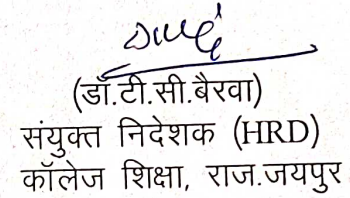 (डॉ.टी.सी.बैरवा)
संयुक्त निदेशक (HRD)
कॉलेज शिक्षा, राज.जयपुर